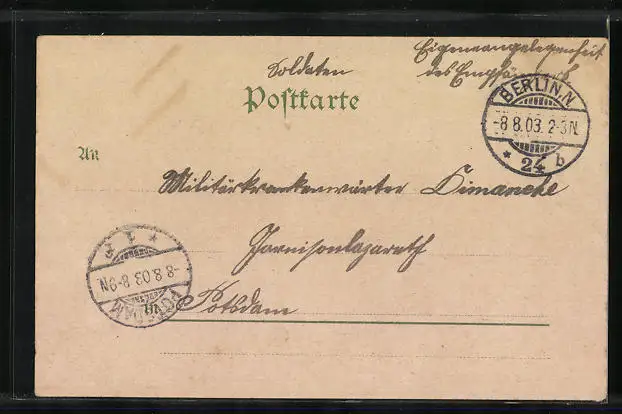 Eigeneangelegenheit
des Empfängers
Soldaten
Postkarte
BERLIN,N
-8.8.03. 2-3N.
* 24 b
An
Militärkrankenwärter Dimanche
Garnisonlazareth
in Potsdam
POTSDAM
-8.8.03. 8-9N.
* 1